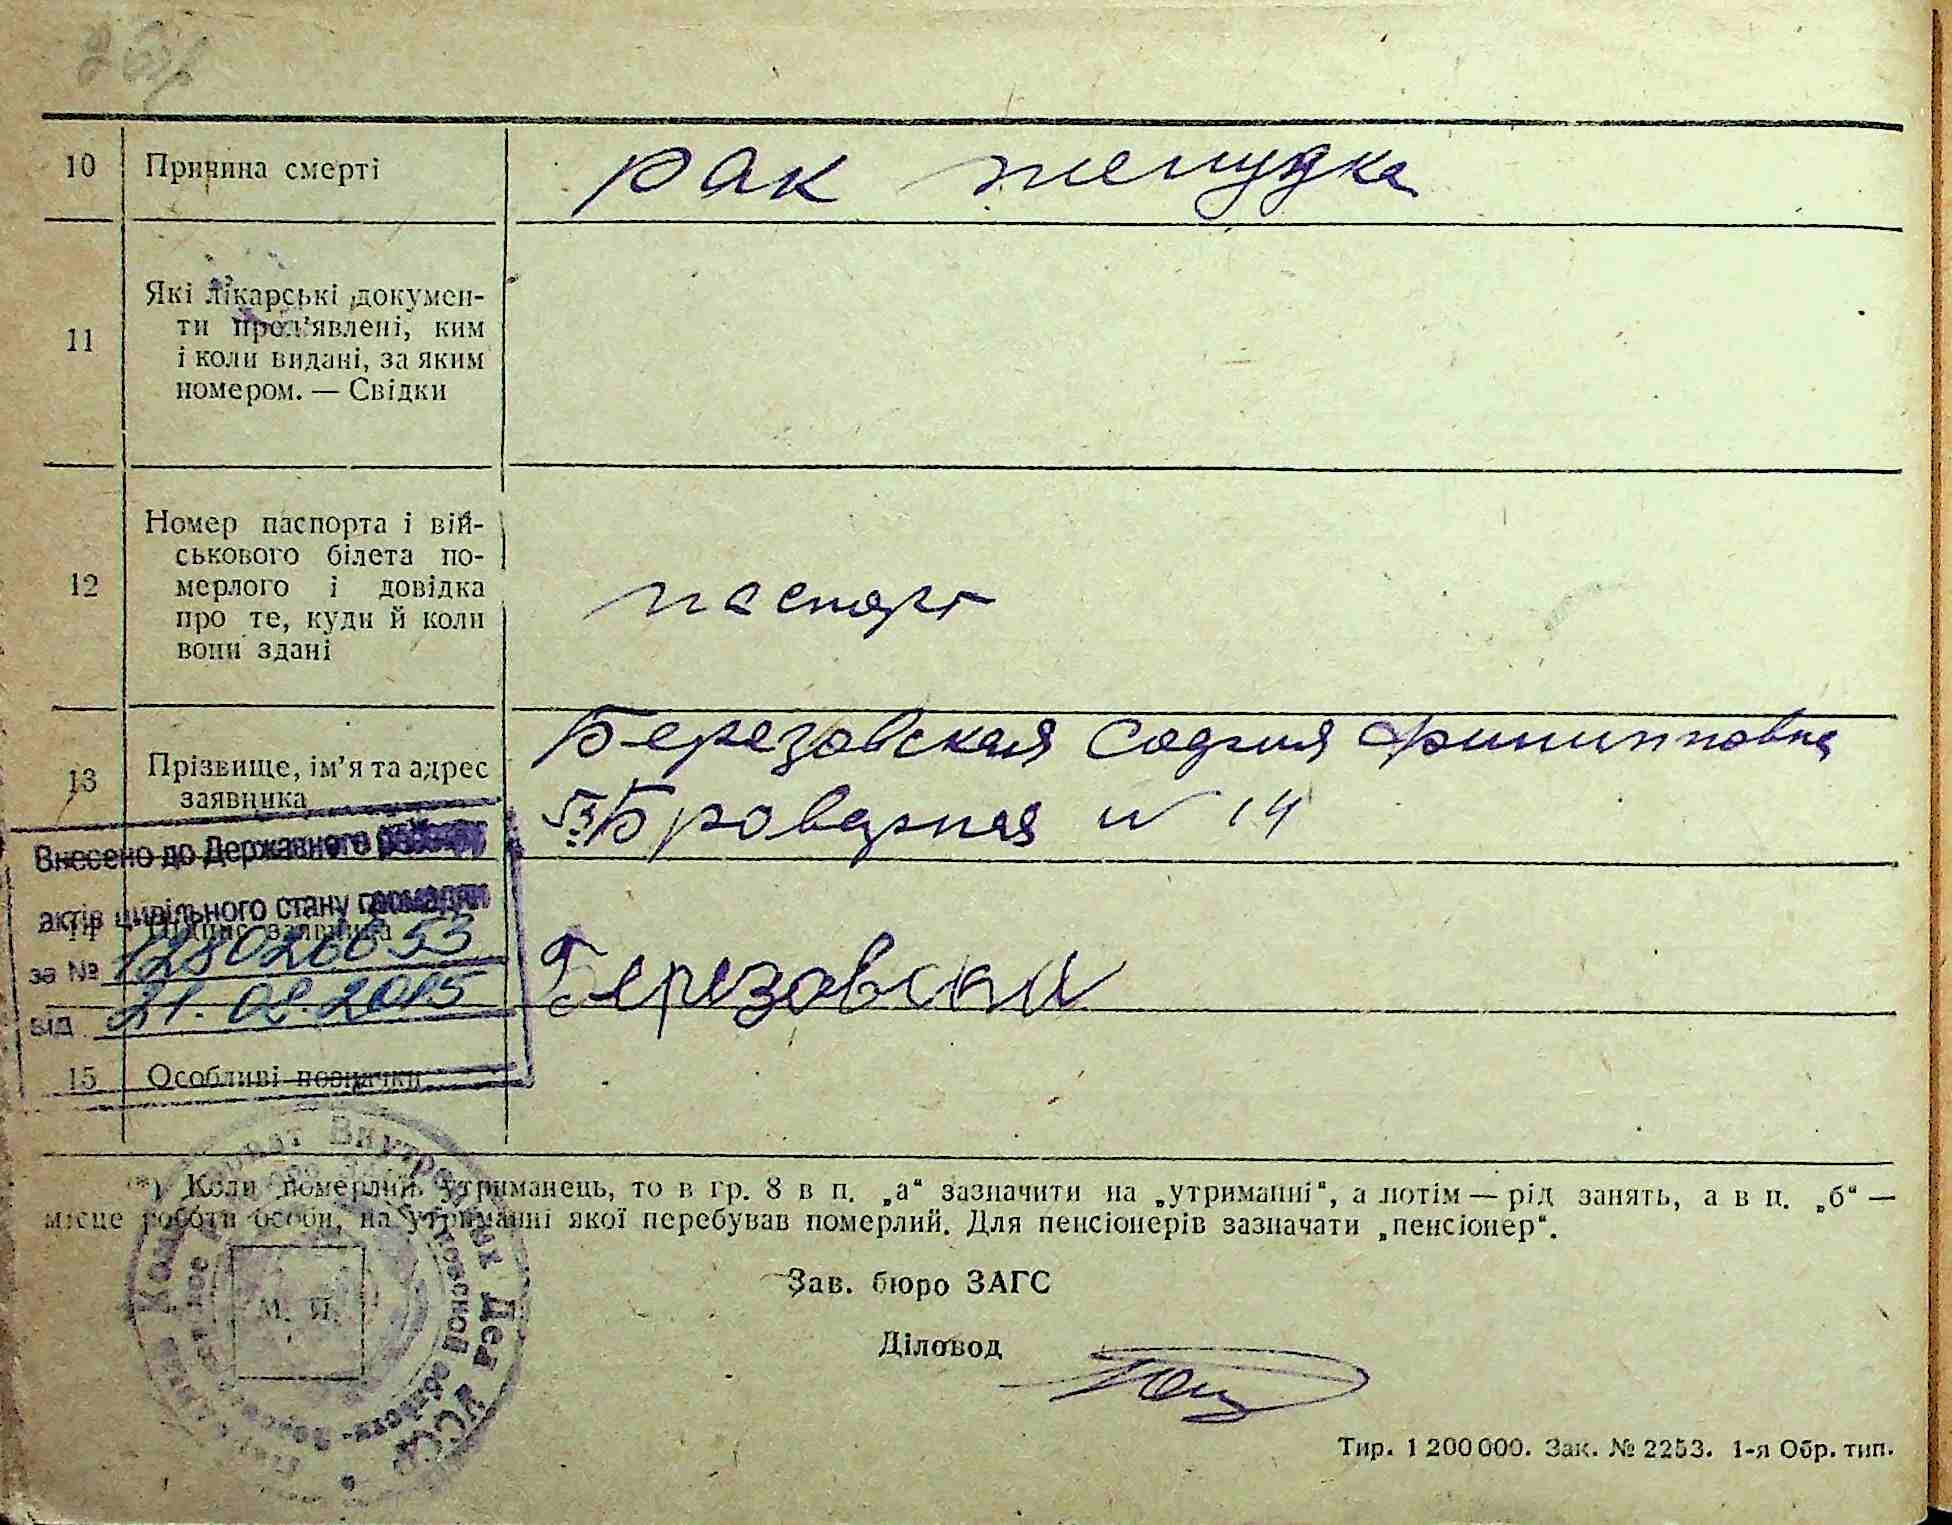 10 Причина смерті рак желудка
11 Які лікарські докумен-
ти пред'явлені, ким
і коли видані, за яким
номером. — Свідки
12 Номер паспорта і вій-
ськового білета по-
мерлого і довідка
про те, куди й коли
вони здані
паспорт
13 Прізвище, ім'я та адрес
заявника
Березовская София Филипповна
Броварная N 14
Внесено до Державного реєстру
актів цивільного стану громадян
14 Підпис заявника
за № 12802660 53
від 21.02.2015
Березовская
15 Особливі позначки
(*) Коли померлий утриманець, то в гр. 8 в п. „а“ зазначити на „утриманні“, а потім — рід занять, а в п. „б“ —
місце роботи особи, на утриманні якої перебував померлий. Для пенсіонерів зазначати „пенсіонер“.
Зав. бюро ЗАГС
Діловод
М. П.
Комиссариат Внутренних Дел УССР
Тир. 1 200 000. Зак. № 2253. 1-я Обр. тип.